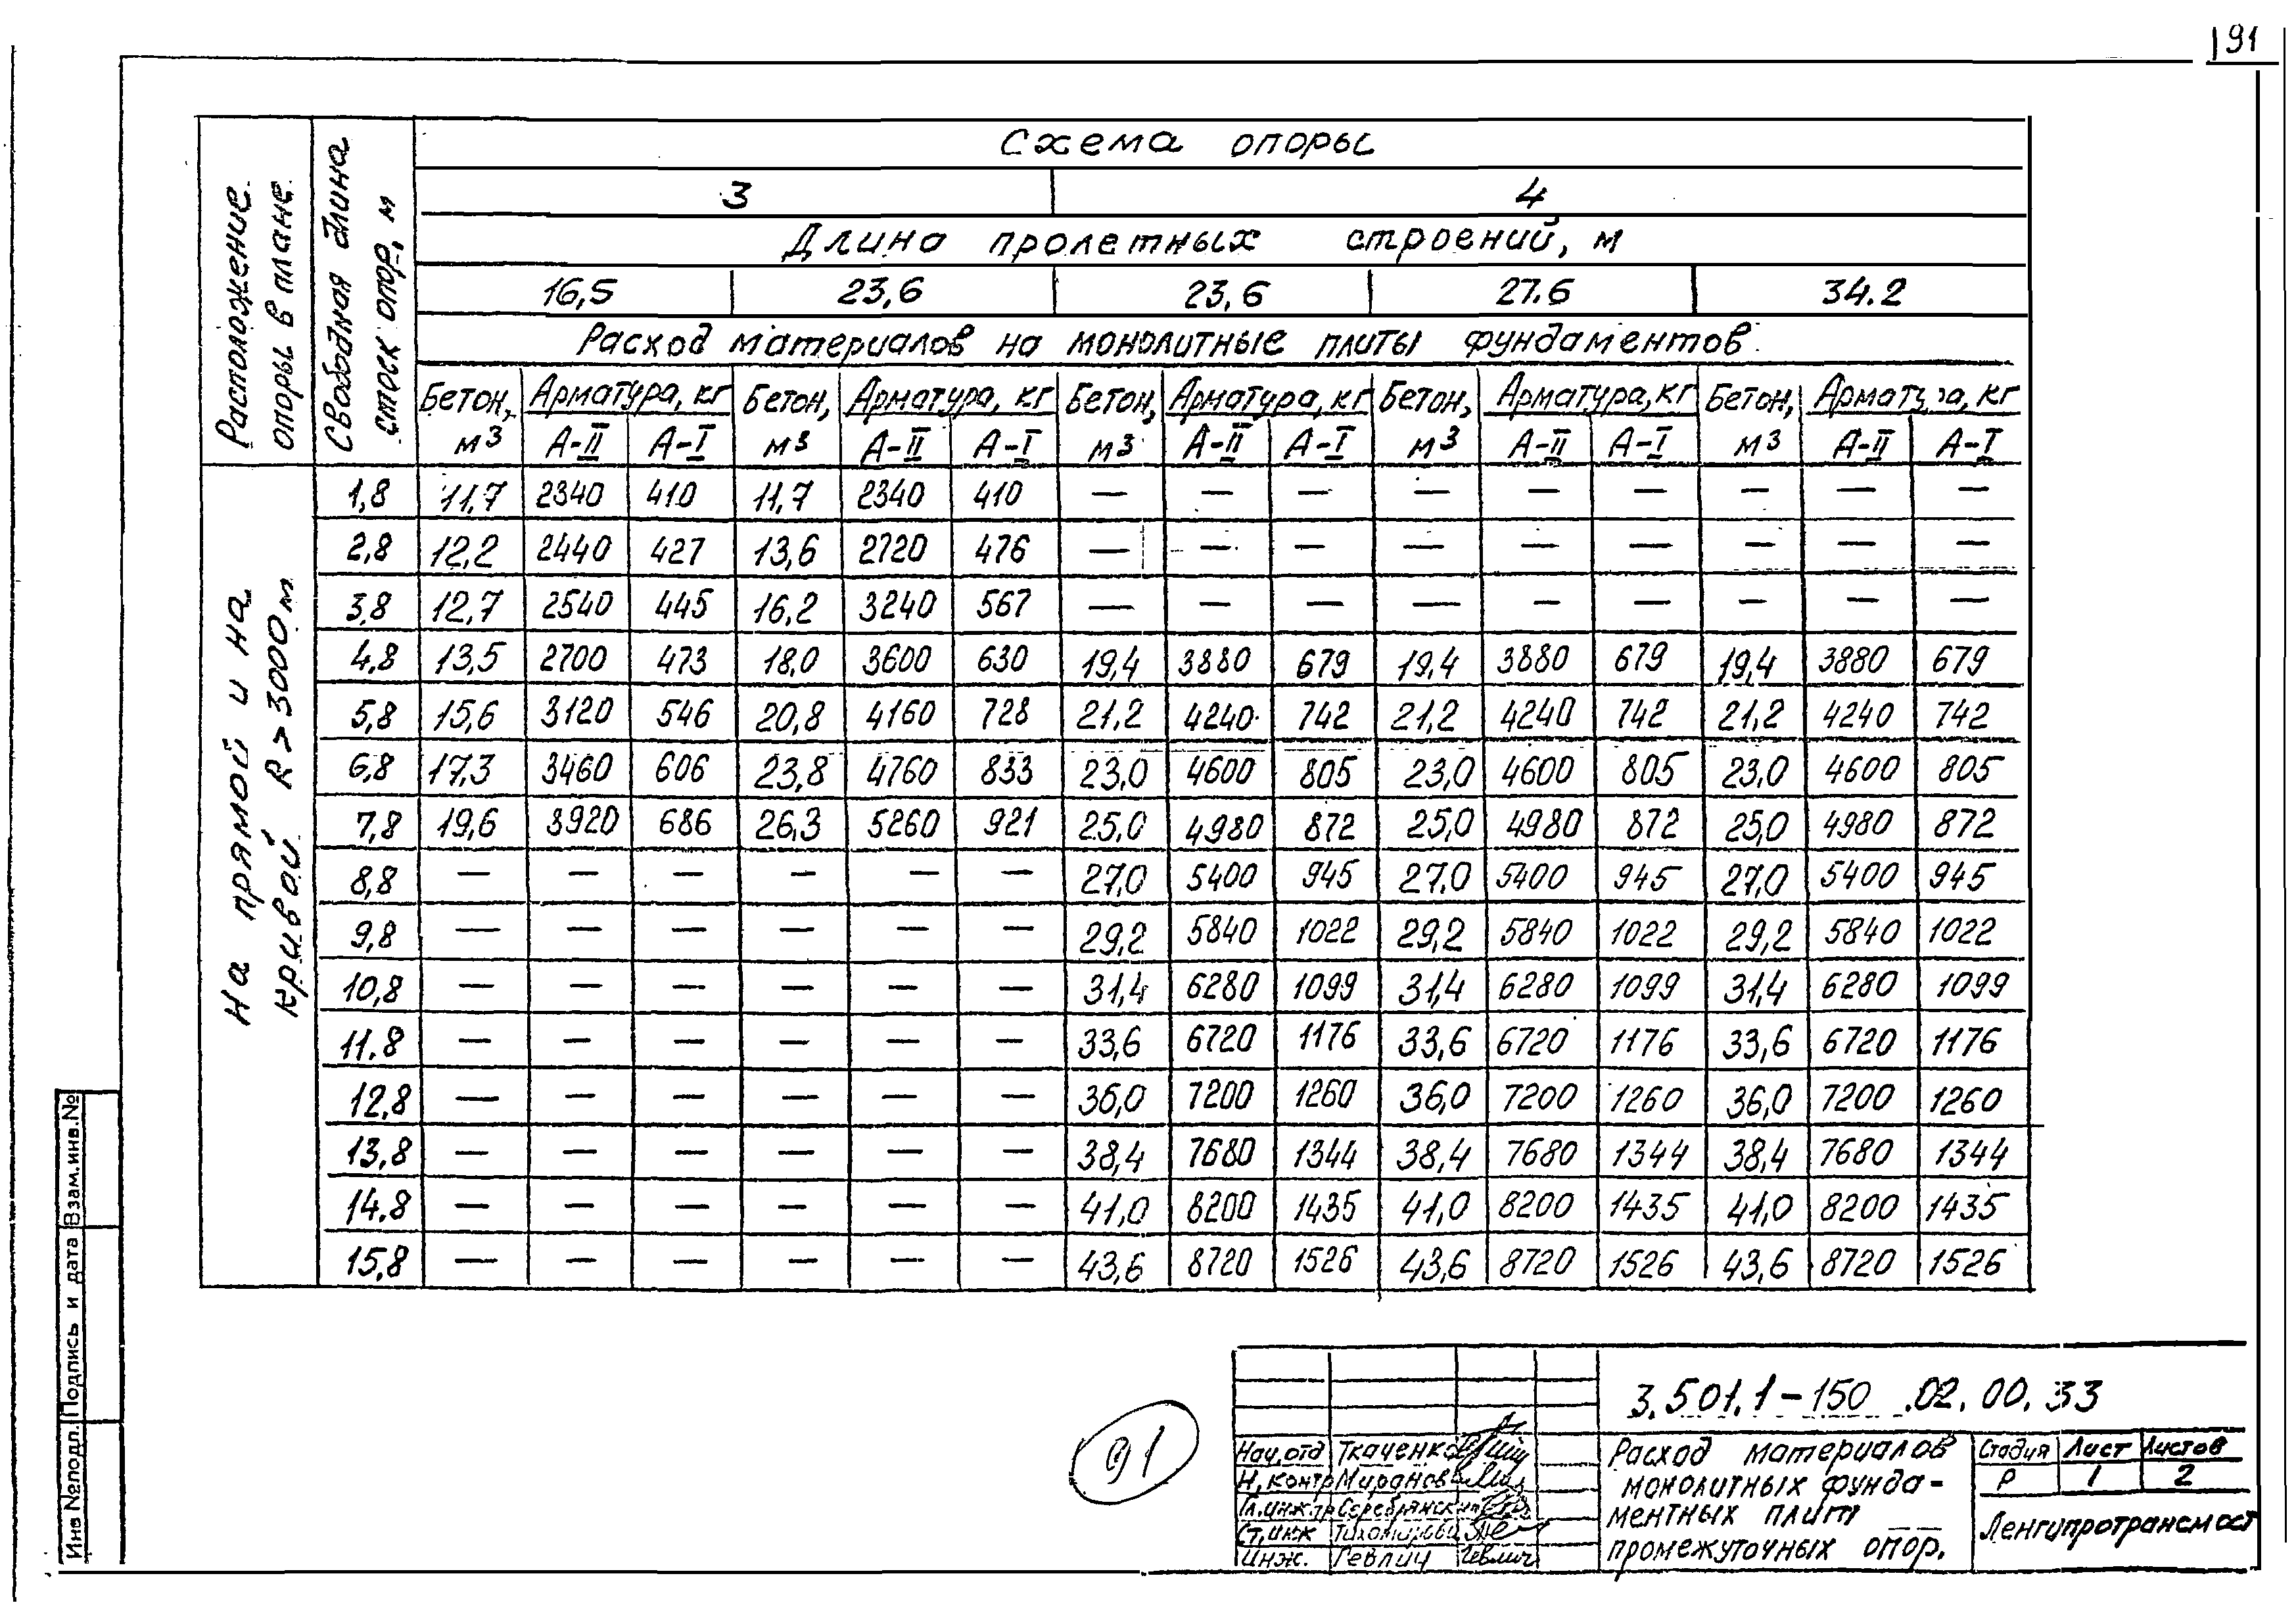 91
Расположение опоры в плане
Свободная длина стоек опор, м
Схема опоры
3 4
Длина пролетных строений, м
16,5 23,6 23,6 27.6 34.2
Расход материалов на монолитные плиты фундаментов
Бетон, м3 Арматура, кг Бетон, м3 Арматура, кг Бетон, м3 Арматура, кг Бетон, м3 Арматура, кг Бетон, м3 Арматура, кг
А-II А-I А-II А-I А-II А-I А-II А-I А-II А-I
На прямой и на кривой R > 3000 м
1,8 11,7 2340 410 11,7 2340 410 — — — — — — — — —
2,8 12,2 2440 427 13,6 2720 476 — — — — — — — — —
3,8 12,7 2540 445 16,2 3240 567 — — — — — — — — —
4,8 13,5 2700 473 18,0 3600 630 19,4 3880 679 19,4 3880 679 19,4 3880 679
5,8 15,6 3120 546 20,8 4160 728 21,2 4240 742 21,2 4240 742 21,2 4240 742
6,8 17,3 3460 606 23,8 4760 833 23,0 4600 805 23,0 4600 805 23,0 4600 805
7,8 19,6 3920 686 26,3 5260 921 25,0 4980 872 25,0 4980 872 25,0 4980 872
8,8 — — — — — — 27,0 5400 945 27,0 5400 945 27,0 5400 945
9,8 — — — — — — 29,2 5840 1022 29,2 5840 1022 29,2 5840 1022
10,8 — — — — — — 31,4 6280 1099 31,4 6280 1099 31,4 6280 1099
11.8 — — — — — — 33,6 6720 1176 33,6 6720 1176 33,6 6720 1176
12,8 — — — — — — 36,0 7200 1260 36,0 7200 1260 36,0 7200 1260
13,8 — — — — — — 38,4 7680 1344 38,4 7680 1344 38,4 7680 1344
14.8 — — — — — — 41,0 8200 1435 41,0 8200 1435 41,0 8200 1435
15,8 — — — — — — 43,6 8720 1526 43,6 8720 1526 43,6 8720 1526
Инв №подл. Подпись и дата Взам.инв.№
91
3.501.1-150 .02.00.33
Нач.отд Ткаченко
Н.контр Миранов
Гл.инж.пр Серебрянский
Ст.инж Тихомирова
Инж. Гевлич Гевлич
Расход материалов
монолитных фунда-
ментных плит
промежуточных опор.
Стадия Лист Листов
Р 1 2
Ленгипротрансмост